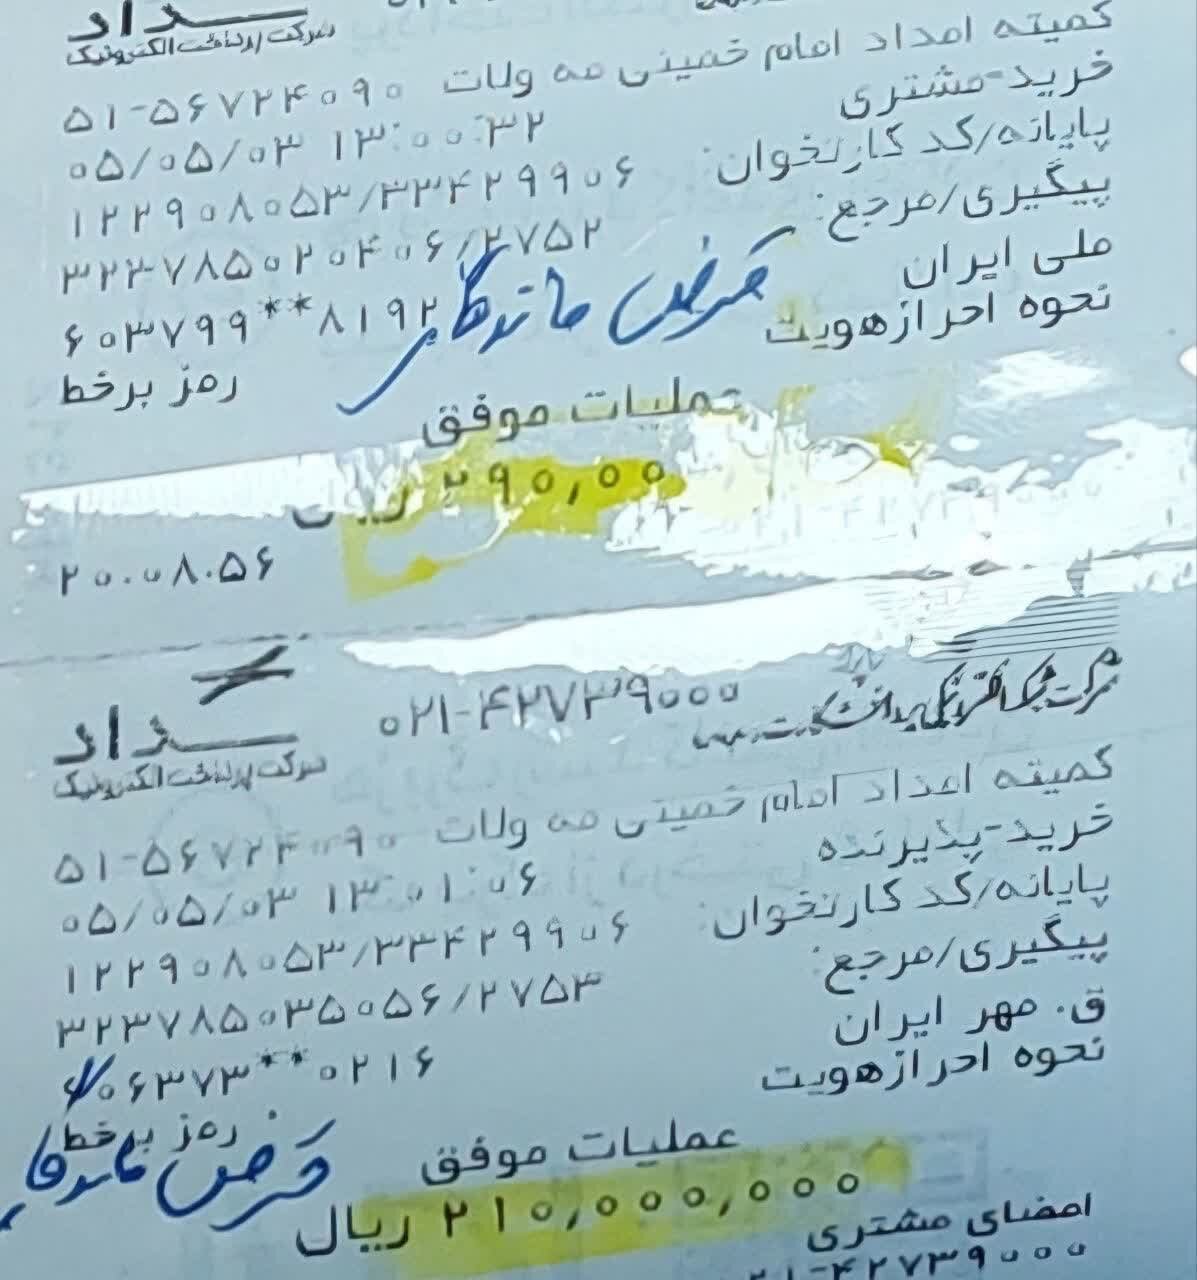 سداد
شرکت پرداخت الکترونیک
کمیته امداد امام خمینی مه ولات ۵۱-۵۶۷۲۴۰۹۰
خرید-مشتری
۰۵/۰۵/۰۳ ۱۳:۰۰:۳۲
پایانه/کد کارتخوان:
۱۲۲۹۰۸۰۵۳/۳۳۴۲۹۹۰۶
پیگیری/مرجع:
۳۲۳۷۸۵۰۲۰۴۰۶/۲۷۵۲
ملی ایران
۶۰۳۷۹۹**۸۱۹۲
قرض ماندگار
نحوه احرازهویت
رمز برخط
عملیات موفق
۲۹۰,۰۰ ریال
۲۰.۰۸.۵۶
۰۲۱-۴۲۷۳۹۰۰۰
سداد
شرکت پرداخت الکترونیک
کمیته امداد امام خمینی مه ولات ۵۱-۵۶۷۲۴۰۹۰
خرید-پذیرنده
۰۵/۰۵/۰۳ ۱۳:۰۱:۰۶
پایانه/کد کارتخوان:
۱۲۲۹۰۸۰۵۳/۳۳۴۲۹۹۰۶
پیگیری/مرجع:
۳۲۳۷۸۵۰۳۵۰۵۶/۲۷۵۳
ق. مهر ایران
۶۰۶۳۷۳**۰۲۱۶
نحوه احرازهویت
رمز برخط
قرض ماندگار
عملیات موفق
۲۱۰,۰۰۰,۰۰۰ ریال
امضای مشتری
۲۱-۴۲۷۳۹۰۰۰